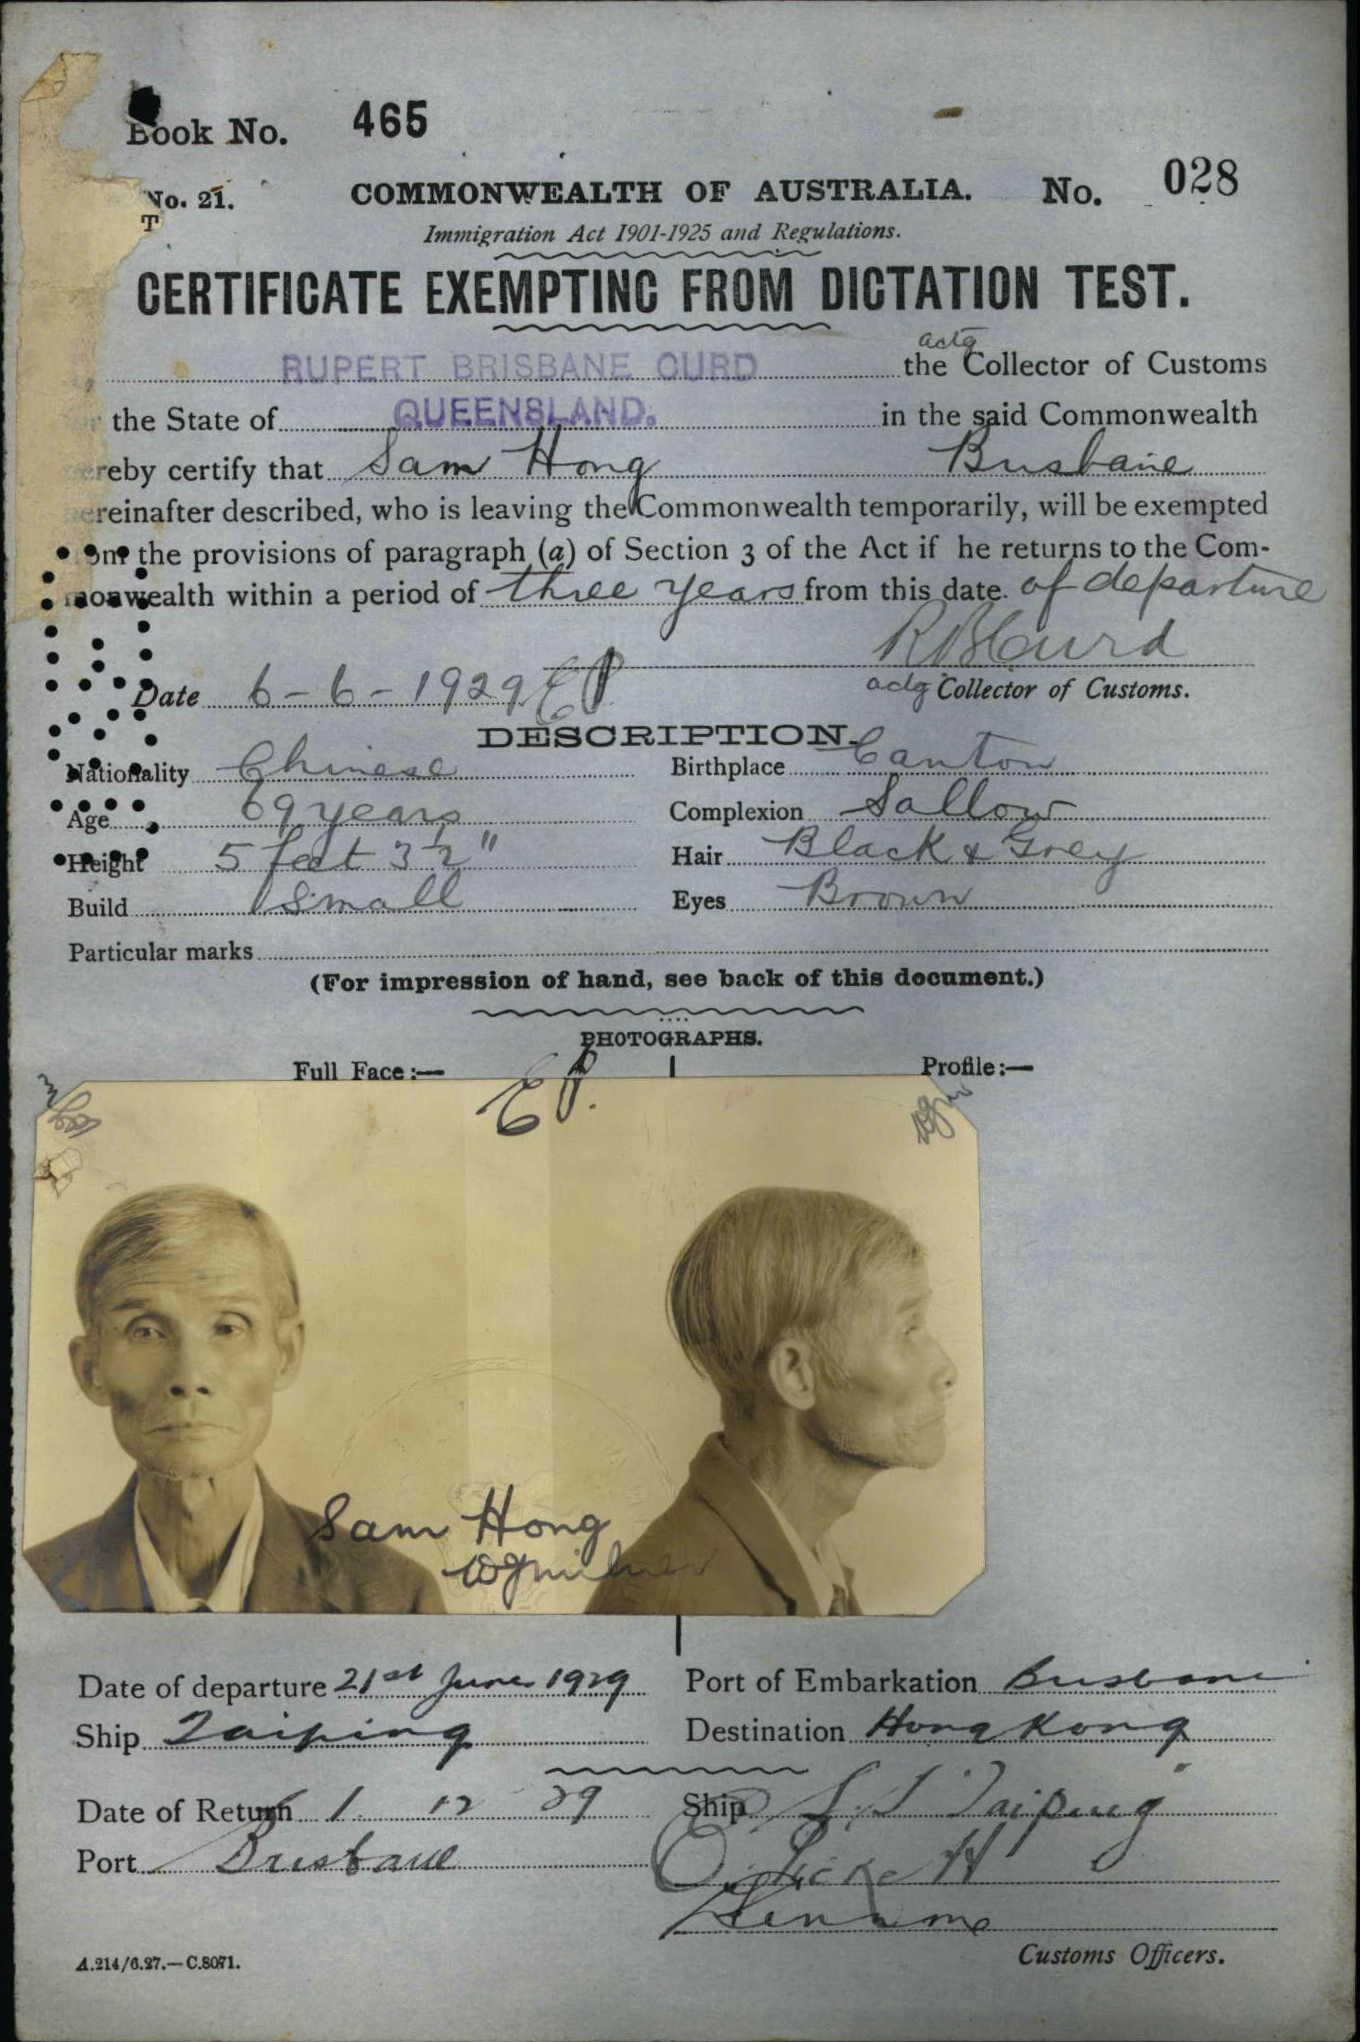 Book No. 465
No. 21. COMMONWEALTH OF AUSTRALIA. No. 028
T
Immigration Act 1901-1925 and Regulations.
CERTIFICATE EXEMPTING FROM DICTATION TEST.
actg
RUPERT BRISBANE CURD the Collector of Customs
the State of QUEENSLAND. in the said Commonwealth
ereby certify that Sam Hong Brisbane
ereinafter described, who is leaving the Commonwealth temporarily, will be exempted
om the provisions of paragraph (a) of Section 3 of the Act if he returns to the Com-
monwealth within a period of three years from this date of departure
RBCurd
Date 6-6-1929 EP actg Collector of Customs.
DESCRIPTION.
Nationality Chinese Birthplace Canton
Age 69 years Complexion Sallow
Height 5 feet 3½" Hair Black & Grey
Build Small Eyes Brown
Particular marks
(For impression of hand, see back of this document.)
PHOTOGRAPHS.
Full Face:— Profile:—
EP.
Sam Hong
WJMilner
Date of departure 21st June 1929 Port of Embarkation Brisbane
Ship Taiping Destination Hong Kong
Date of Return 1 12 29 Ship S.S Taiping
Port Brisbane
Customs Officers.
A.214/6.27.—C.8071.